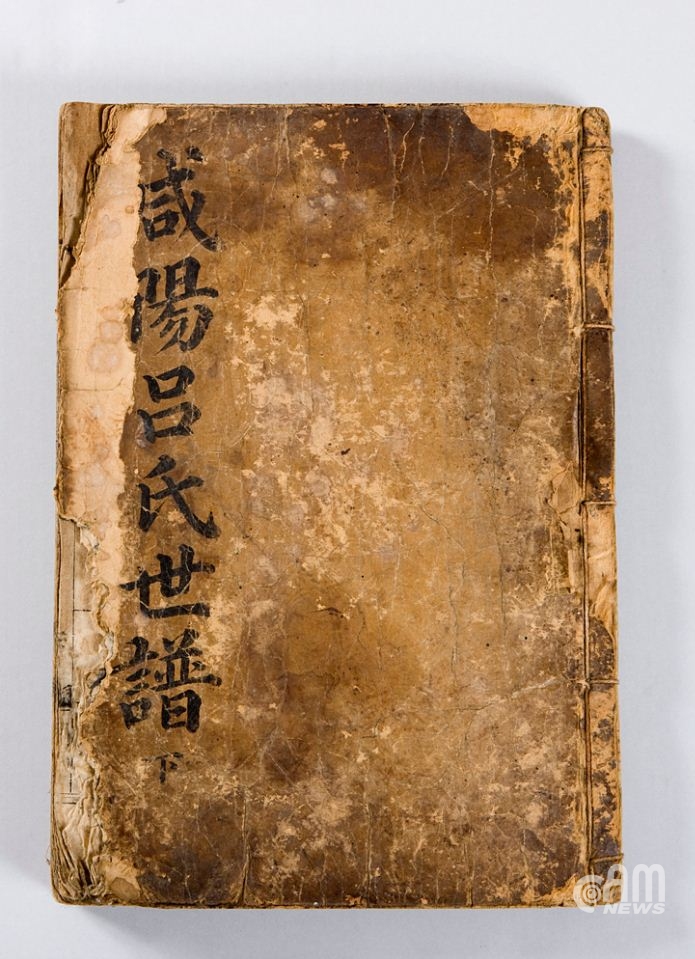 咸陽呂氏世譜 下
CAM
NEWS